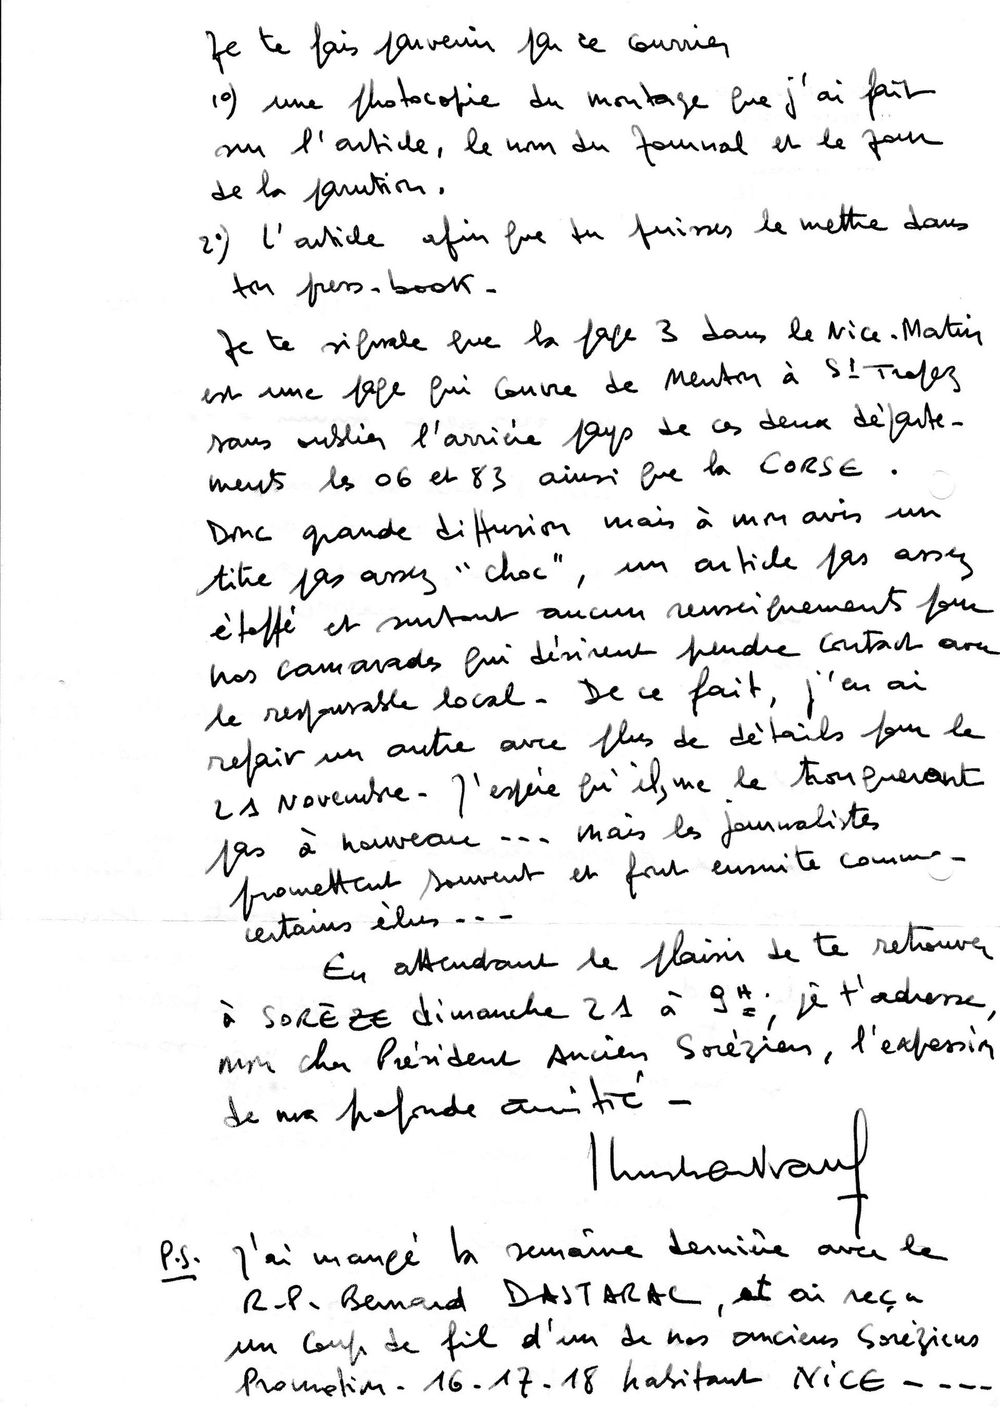 Je te fais parvenir par ce courrier
1°) une photocopie du montage que j'ai fait
sur l'article, le nom du Journal et le jour
de la parution.
2°) L'article afin que tu puisses le mettre dans
ton press-book-
Je te signale que la page 3 dans le Nice-Matin
est une page qui couvre de Menton à St Tropez
sans oublier l'arrière pays de ces deux départe-
ments les 06 et 83 ainsi que la CORSE.
Donc grande diffusion mais à mon avis un
titre pas assez "choc", un article pas assez
étoffé et surtout aucun renseignements pour
nos camarades qui désirent prendre contact avec
le responsable local- De ce fait, j'en ai
refait un autre avec plus de détails pour le
21 Novembre- J'espère qu'ils me le tronqueront
pas à nouveau --- mais les journalistes
promettent souvent et font ensuite comme-
certains élus---
En attendant le plaisir de te retrouver
à SORÈZE dimanche 21 à 9H; je t'adresse,
mon cher Président Ancien Sorézien, l'expression
de ma profonde amitié-
P.S. J'ai mangé la semaine dernière avec le
R.P. Bernard DASTARAC, et ai reçu
un coup de fil d'un de nos anciens Soréziens
Promotion-16-17-18 habitant NICE----